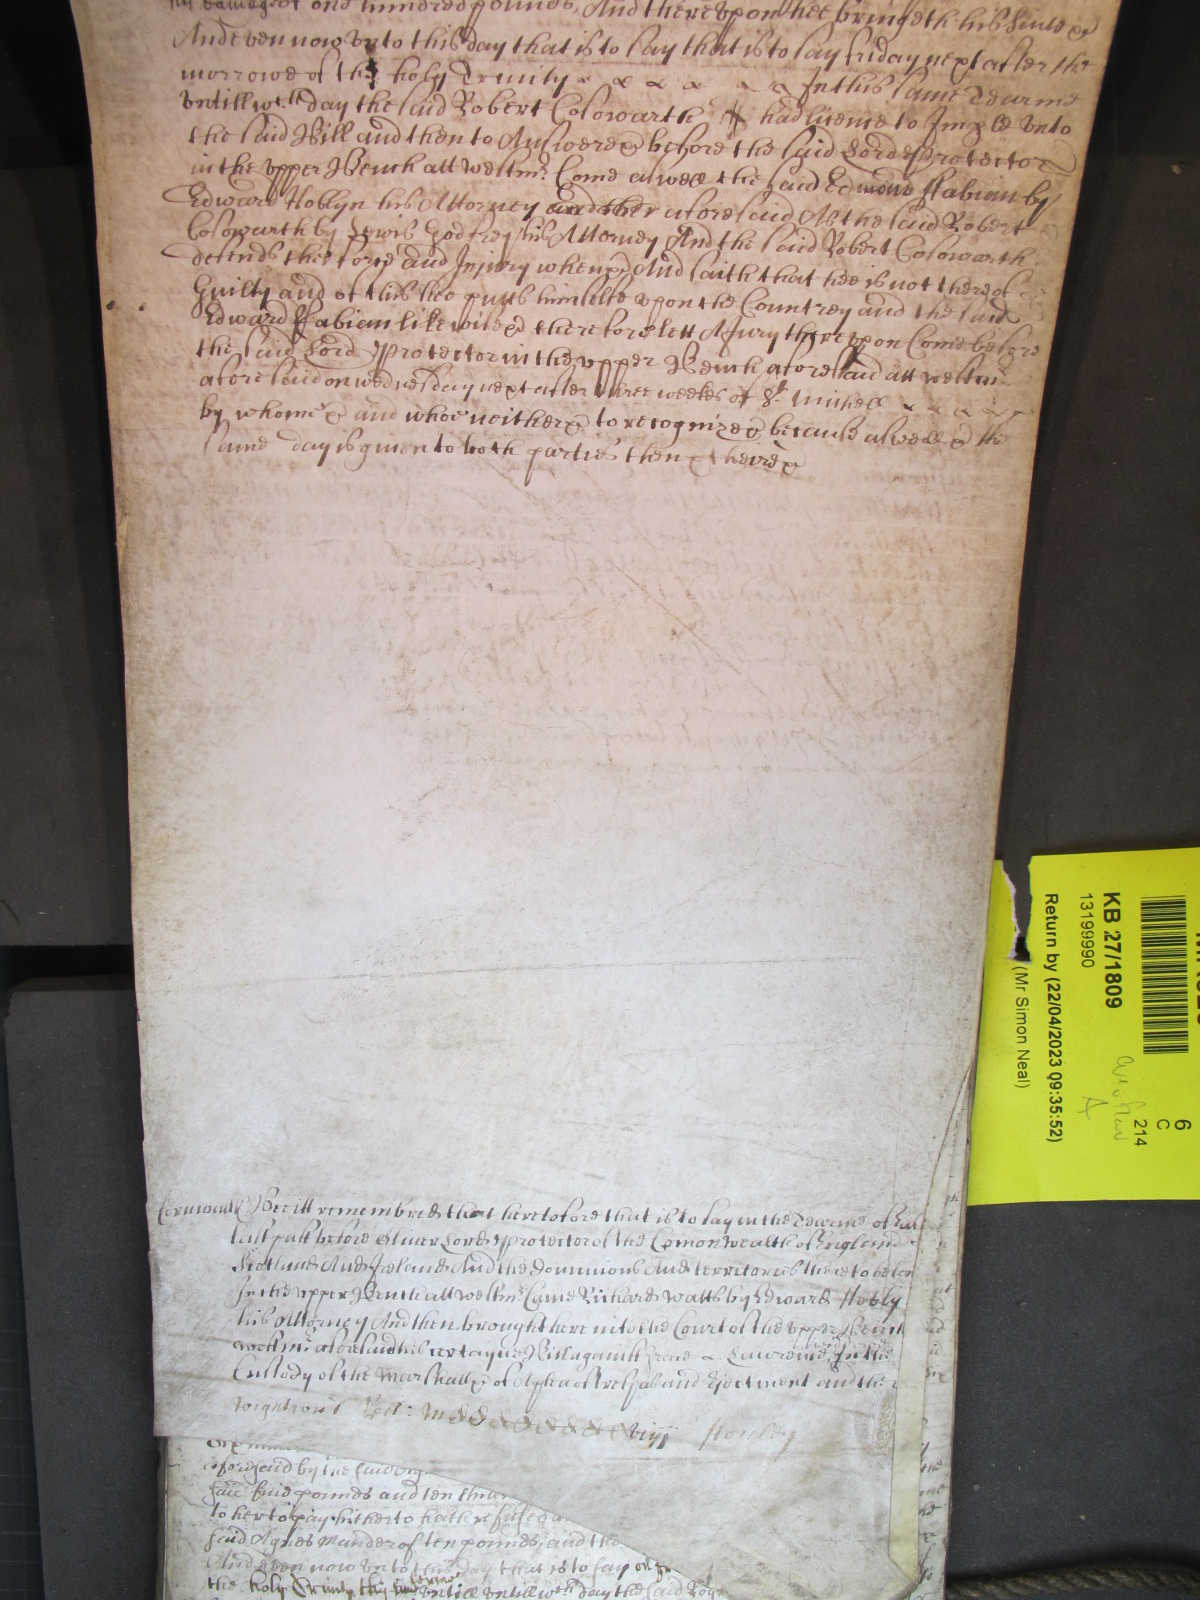 his damage of one hundred pounds, And thereupon hee bringeth his Suite &
And even now unto this day that is to say that is to say friday next after the
morrowe of the holy Trinity In this same Tearme
untill wch day the said Robert Coloworth had licence to Imple unto
the said Bill and then to Answere & before the said Lorde Protector
in the upper Bench att Westmr Come aswell the said Edmond ffabian by
Edward Hoblyn his Attorney aforesaid As the said Robert
Coloworth by Lewis Godfrey his Attorney And the said Robert Coloworth
defends the force and Injury when & And saith that hee is not thereof
Guilty and of this hee putts himselfe upon the Countrey and the said
Edward ffabian likewise & therefore lett A Jury thereupon Come before
the said Lord Protector in the upper Bench aforesaid att Westmr
aforesaid on wednesday next after three weekes of St Michell
by whome & and whoe neither & to recognize & because aswell & the
same day is given to both parties then & there &
Cornwall Bee itt remembred that heretofore that is to say in the Tearme of
last past before Oliver Lorde Protector of the Comon Wealth of England
Scotland And Ireland And the Dominions And territories thereto
In the upper Bench att Westmr Came Richard Watts by Edward Hobly
his Attorney And then brought here into the Court of the upper Bench
Westmr aforesaid his certayne Bill against Lawrence In the
Custody of the Marshall & of A plea of trespas and Ejectment and
viij Henley
aforesaid by the said
five pounds and ten
to her to pay hitherto hath refused
said Agnes Mander of ten pounds, and
And even now unto this day that is to say on
the holy Trinity this untill untill wch day the said
KB 27/1809
13199990
Return by (22/04/2023 09:35:52)
(Mr Simon Neal)
6
C
214